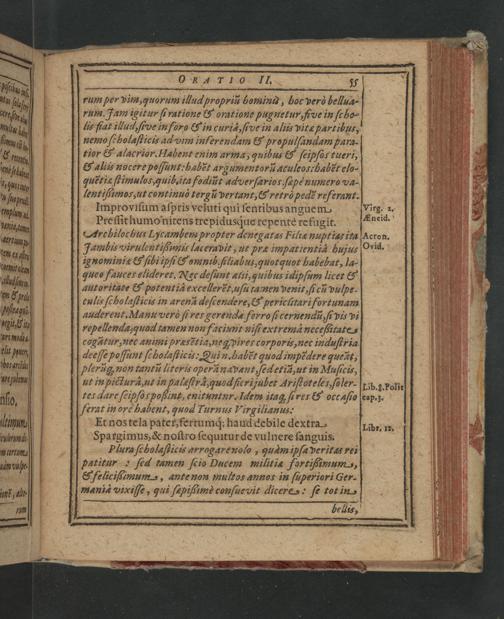 ORATIO II. 35
rum per vim, quorum illud propriũ hominis, hoc verò bellua-
rum. Jam igitur si ratione & oratione pugnetur, sive in scho-
lis fiat illud, sive in foro & in curiâ, sive in aliis vitæ partibus,
nemo scholasticis ad vim inferendam & propulsandam para-
tior & alacrior. Habent enim arma, quibus & seipsos tueri,
& aliis nocere possunt: habẽt argumentorũ aculeos: habẽt elo-
quẽtiæ stimulos, quib, ita fodiũt adversarios, sæpè numero va-
lentissimos, ut continuò tergũ vertant, & retrò pedẽ referant.
Improvisum aspris veluti qui sentibus anguem Virg. 2.
Pressit humo nitens trepidusque repentè refugit. Æneid.
Archilochus Lycambem propter denegatas Filiæ nuptias ita Acron.
Jambis virulentissimis laceravit, ut præ impatientiâ hujus Ovid.
ignominiæ & sibi ipsi & omnib. filiabus, quotquot habebat, la-
queo fauces elideret. Nec desunt alii, quibus id ipsum licet &
autoritate & potentiâ excellerẽt, usu tamen venit, si cũ vulpe-
culis scholasticis in arenã descendere, & periclitari fortunam
auderent. Manu verò si res gerenda, ferro si cernendũ, si vis vi
repellenda; quod tamen non faciunt nisi extremâ necessitate
cogãtur, nec animi præsẽtia, neq, vires corporis, nec industria
deesse possunt scholasticis: Quin. habẽt quod impẽdere queãt,
plerũq, non tantũ literis operã navant, sed etiã, ut in Musicis,
ut in picturâ, ut in palæstrâ, quod scribit Aristoteles, soler- Lib. 8. Polit
tes dare seipsos possint, enituntur. Idem itaq, si res & occasio cap. 3.
ferat in ore habent, quod Turnus Virgilianus:
Et nos tela pater, ferrumq; haud debile dextra Libr. 12.
Spargimus, & nostro sequitur de vulnere sanguis.
Plura scholasticis arrogare nolo, quàm ipsa veritas rei
patitur: sed tamen scio Ducem militiâ fortissimum,
& felicissimum, ante non multos annos in superiori Ger-
maniâ vixisse, qui sæpissimè consuevit dicere: se tot in
bellis,